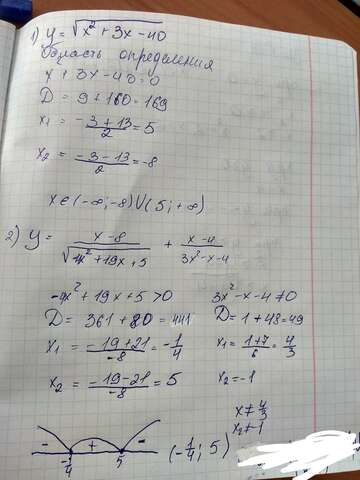 1) y = √(x² + 3x - 40)
Область определения
x + 3x - 40 = 0
D = 9 + 160 = 169
x₁ = (-3 + 13)/2 = 5
x₂ = (-3 - 13)/2 = -8
x ∈ (-∞; -8) ∪ (5; +∞)
2) y = (x - 8)/√(4x² + 19x + 5) + (x - 4)/(3x² - x - 4)
-4x² + 19x + 5 > 0
D = 361 + 80 = 441
x₁ = (-19 + 21)/-8 = -1/4
x₂ = (-19 - 21)/-8 = 5
3x² - x - 4 ≠ 0
D = 1 + 48 = 49
x₁ = (1 + 7)/6 = 4/3
x₂ = -1
x ≠ 4/3
x₂ ≠ -1
- + -
-1/4 5
(-1/4; 5)